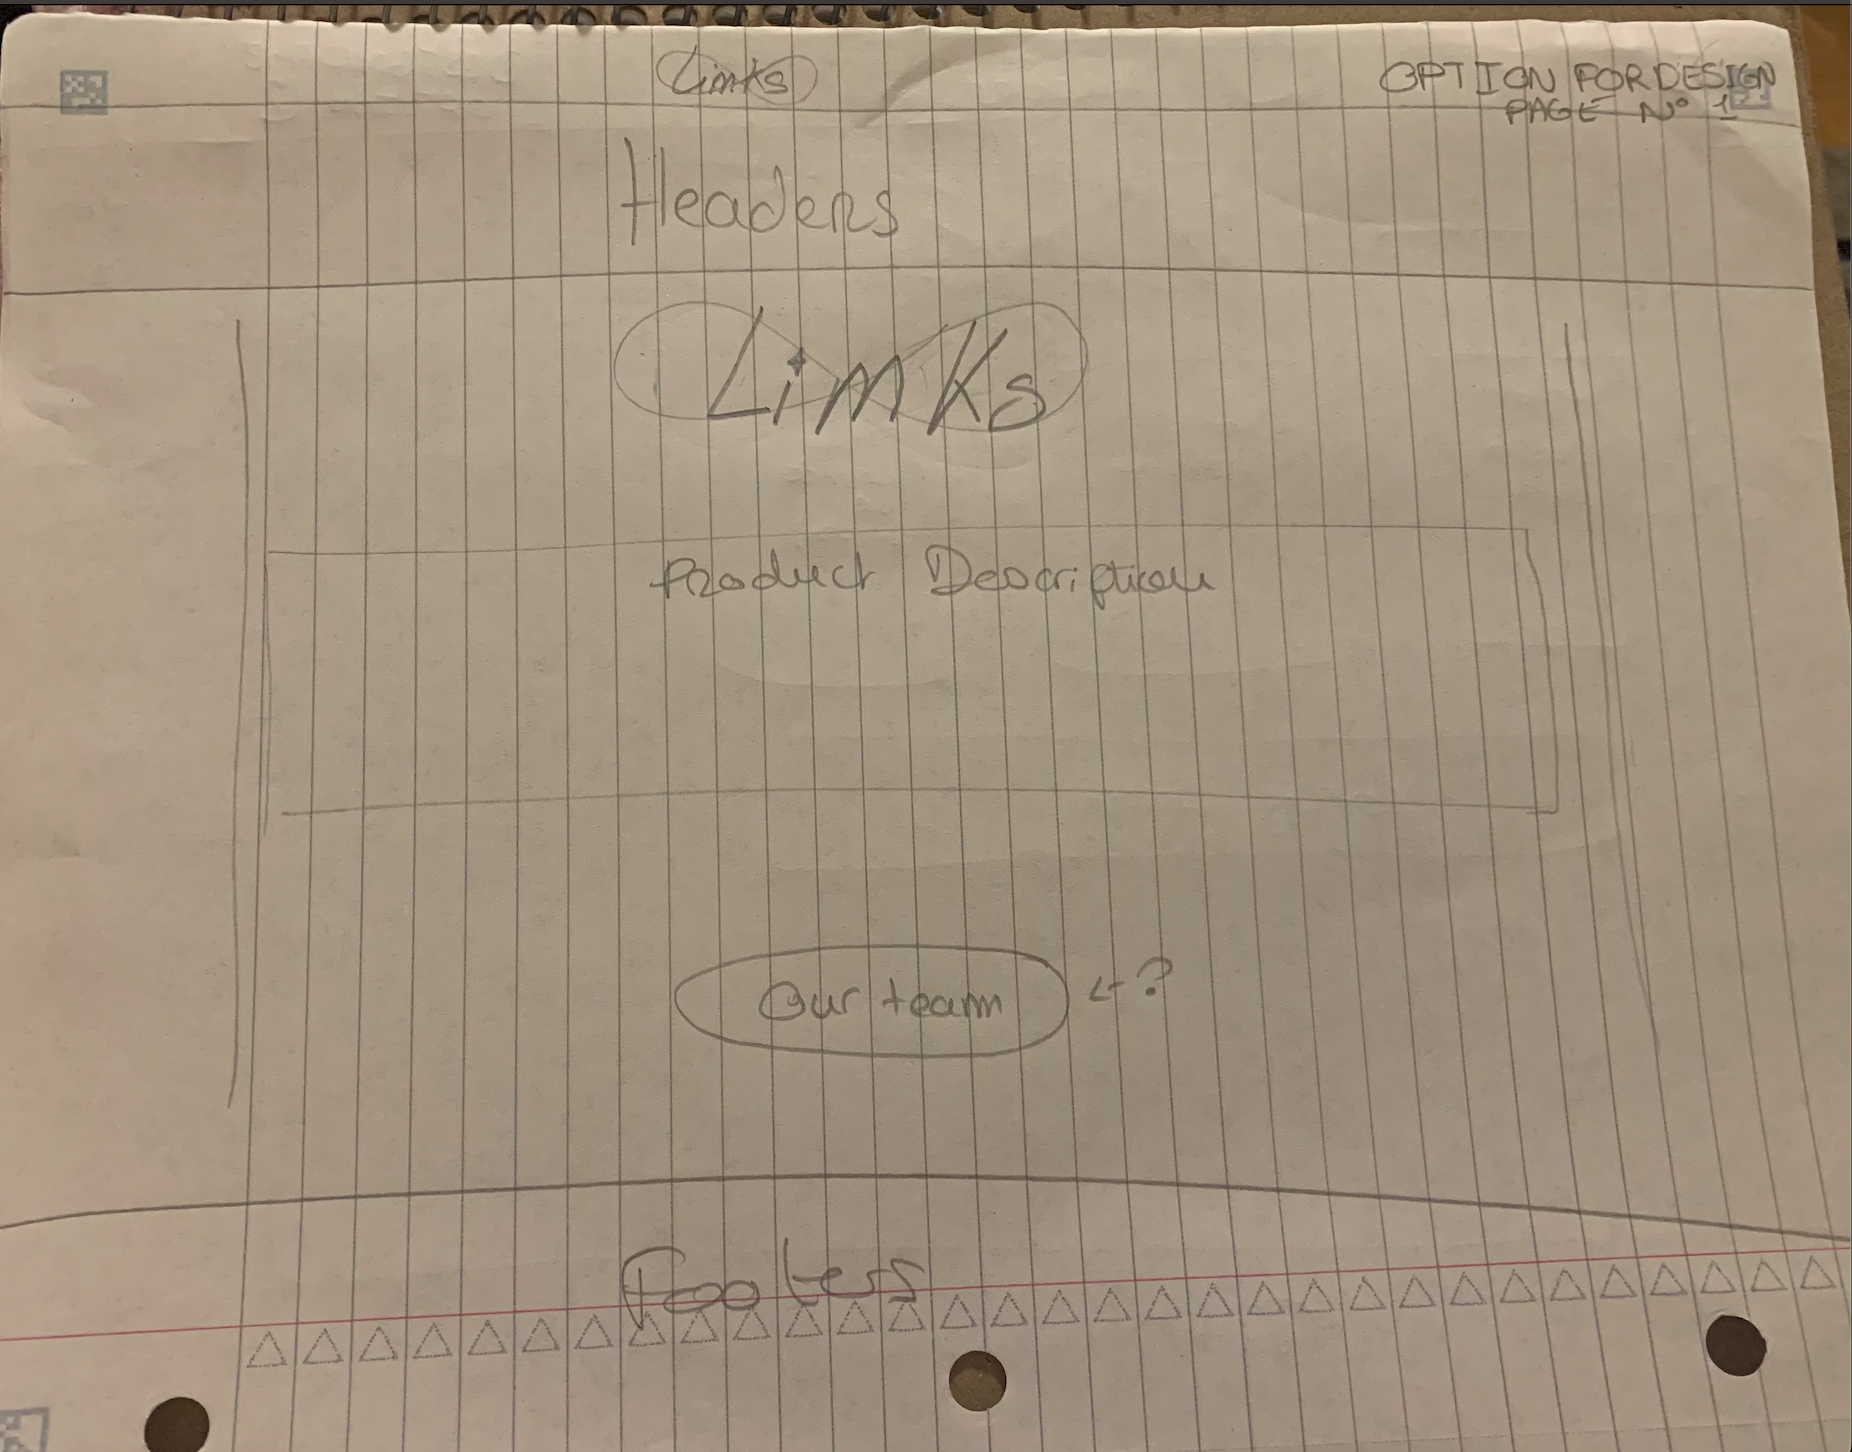 Limks
OPTION FOR DESIGN
PAGE N° 1
Headers
Limks
Product Description
Our team ←?
Footers